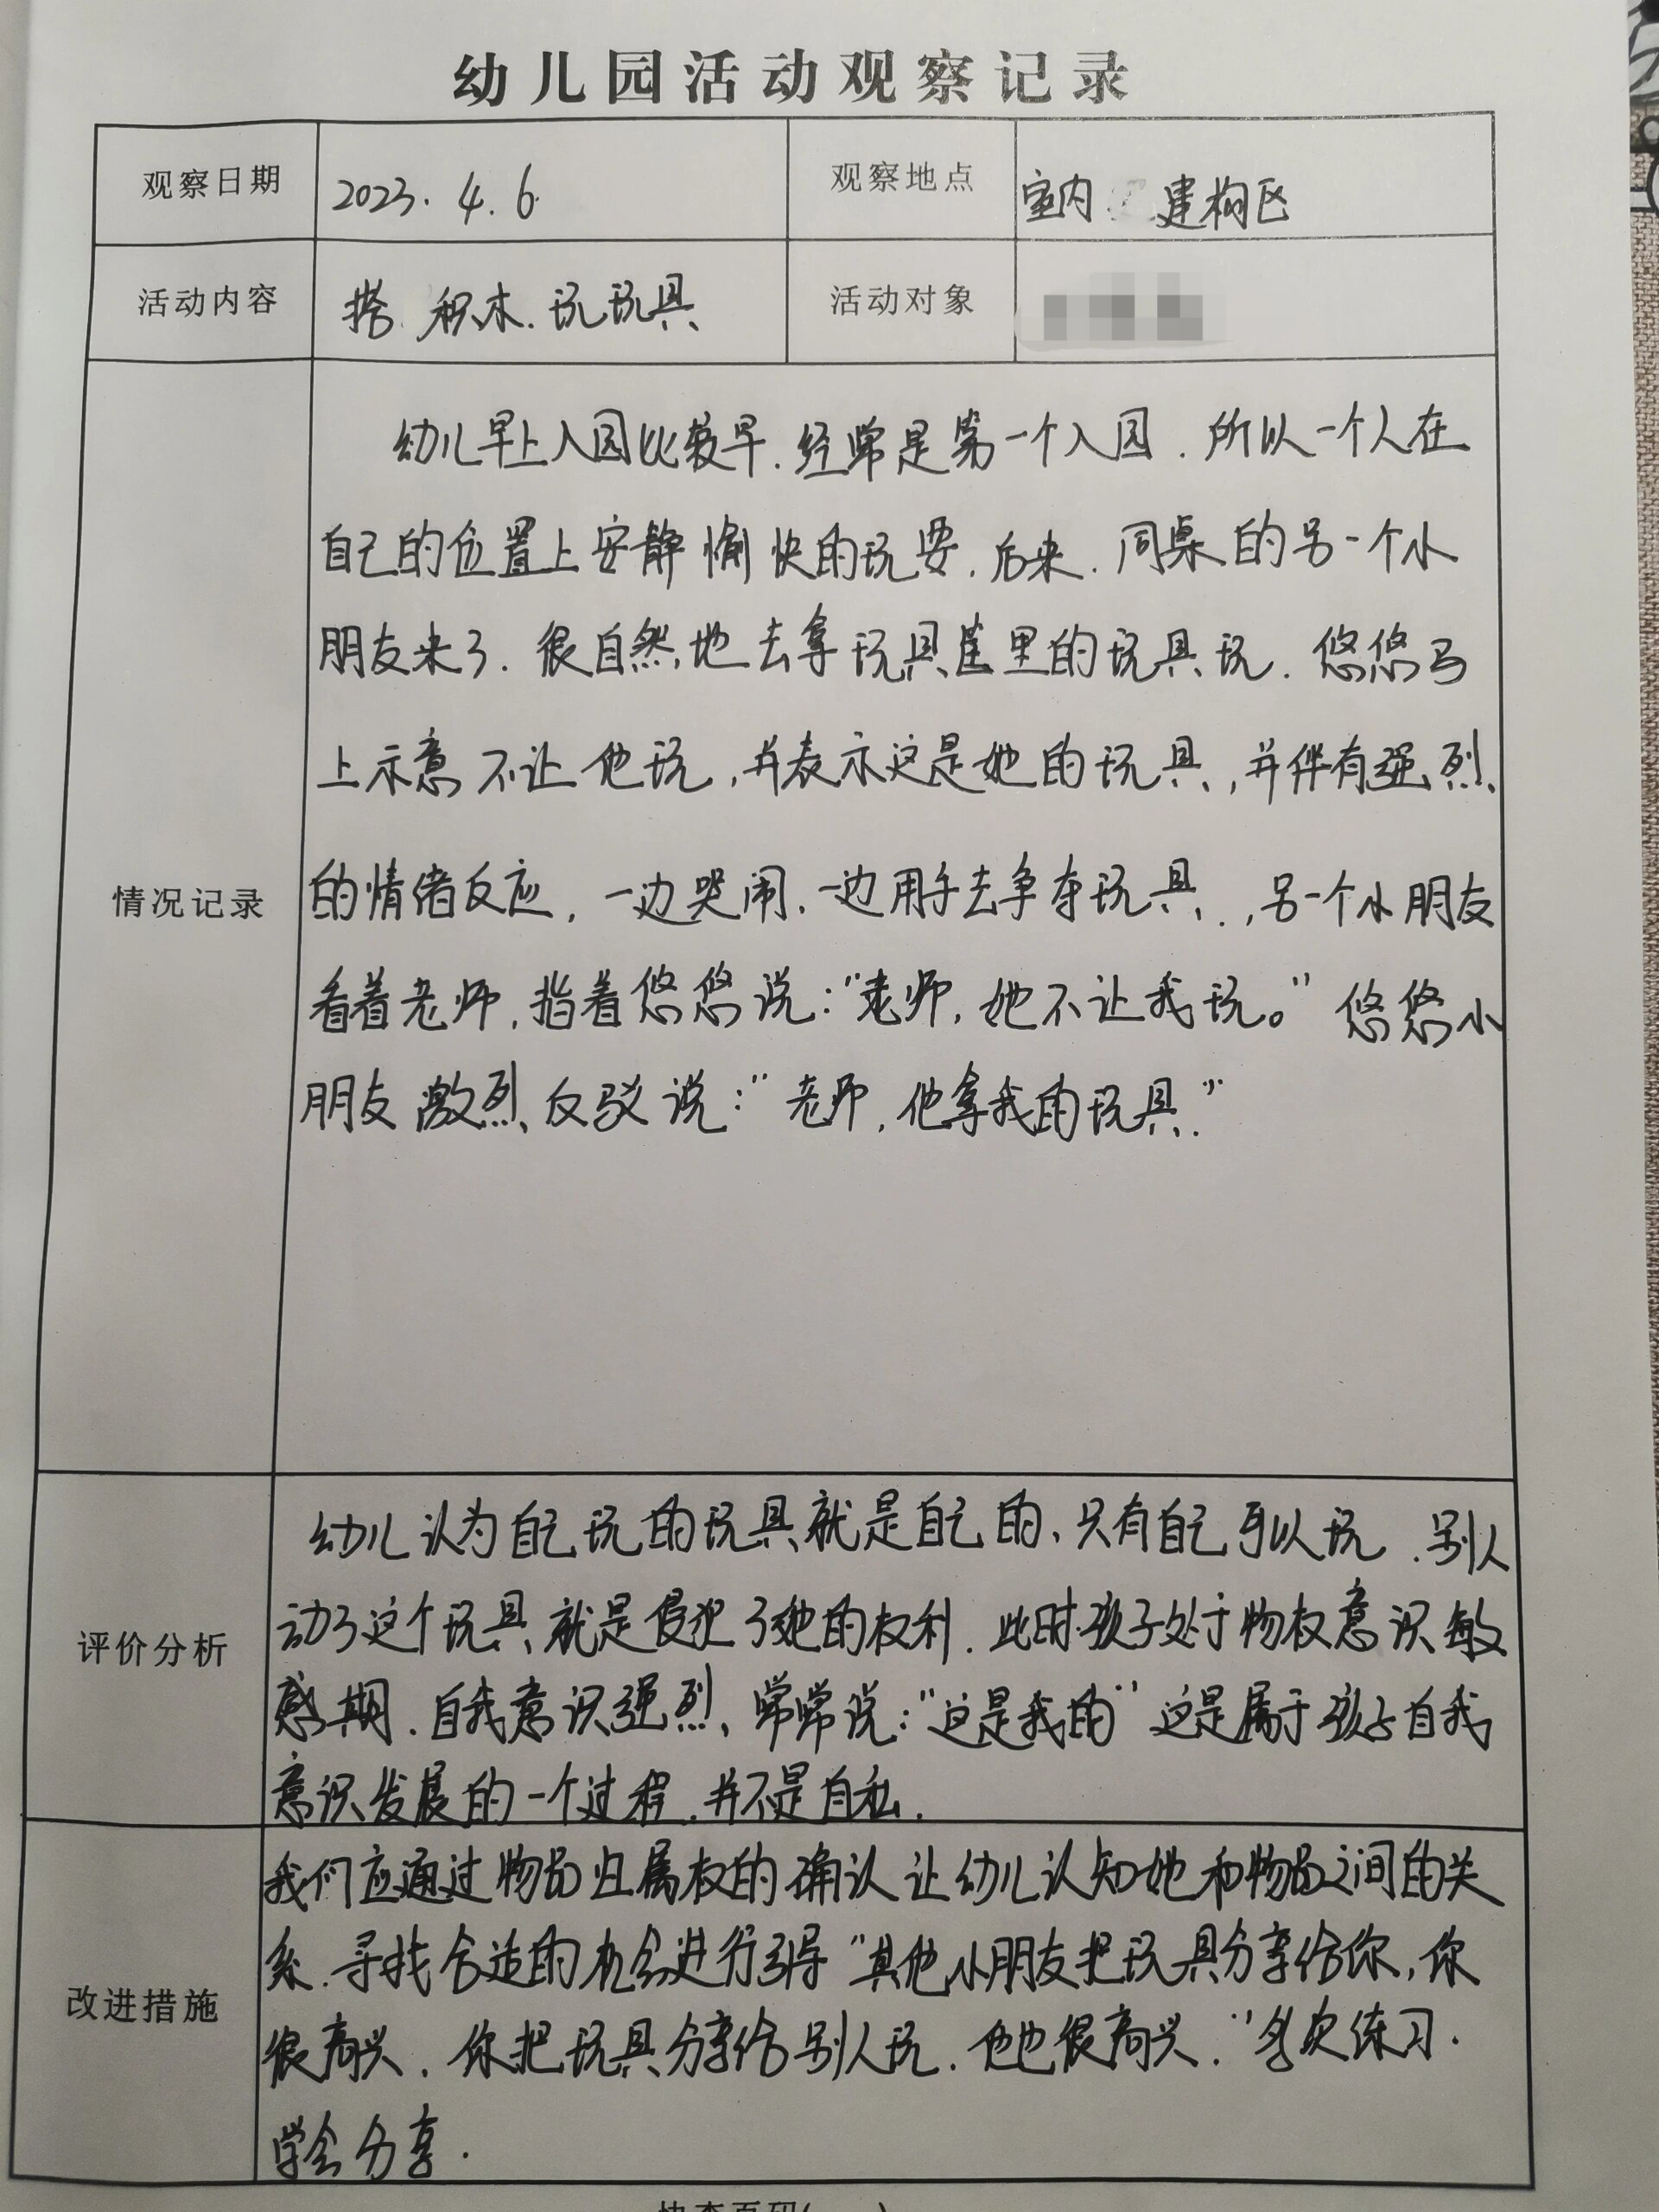 幼儿园活动观察记录
观察日期 2023.4.6. 观察地点 室内 建构区
活动内容 搭 积木.玩玩具 活动对象
情况记录
幼儿早上入园比较早.经常是第一个入园.所以一个人在
自己的位置上安静愉快的玩耍.后来.同桌的另一个小
朋友来了.很自然地去拿玩具筐里的玩具玩.悠悠马
上示意不让他玩,并表示这是她的玩具,并伴有强烈
的情绪反应,一边哭闹,一边用手去争夺玩具.,另一个小朋友
看着老师,指着悠悠说:“老师,她不让我玩。”悠悠小
朋友激烈反驳说:“老师,他拿我的玩具.”
评价分析
幼儿认为自己玩的玩具就是自己的、只有自己可以玩.别人
动了这个玩具就是侵犯了她的权利.此时孩子处于物权意识敏
感期.自我意识强烈、常常说:“这是我的”这是属于孩子自我
意识发展的一个过程.并不是自私.
改进措施
我们应通过物品归属权的确认让幼儿认知她和物品之间的关
系.寻找合适的机会进行引导“其他小朋友把玩具分享给你,你
很高兴.你把玩具分享给别人玩.他也很高兴.”多次练习.
学会分享.